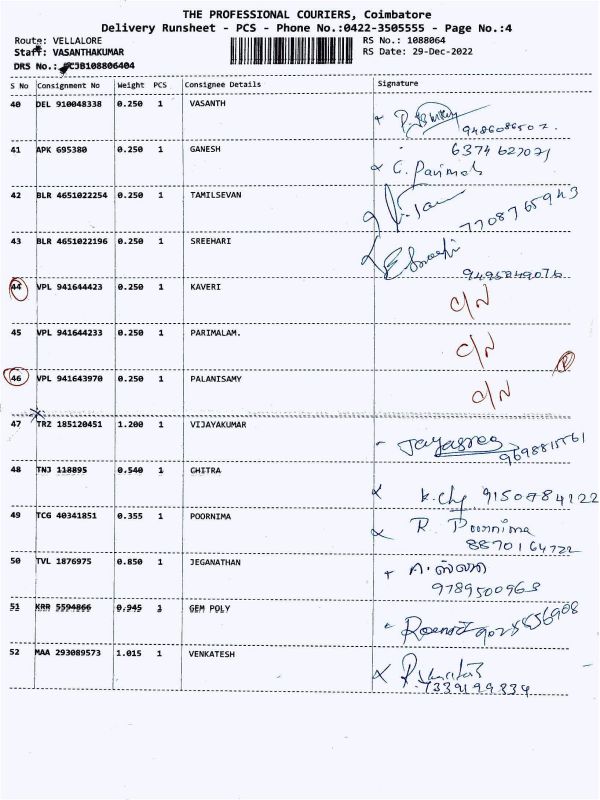 THE PROFESSIONAL COURIERS, Coimbatore
Delivery Runsheet - PCS - Phone No.:0422-3505555 - Page No.:4
Route: VELLALORE RS No.: 1088064
Staff: VASANTHAKUMAR RS Date: 29-Dec-2022
DRS No.: PC3B108806404
S No Consignment No Weight PCS Consignee Details Signature
40 DEL 910048338 0.250 1 VASANTH
41 APK 695380 0.250 1 GANESH 6374627071
C. Parimala
42 BLR 4651022254 0.250 1 TAMILSEVAN
7708765943
43 BLR 4651022196 0.250 1 SREEHARI
9495849076
44 VPL 941644423 0.250 1 KAVERI C/N
45 VPL 941644233 0.250 1 PARIMALAM. C/N
46 VPL 941643970 0.250 1 PALANISAMY C/N
47 TRZ 185120451 1.200 1 VIJAYAKUMAR Jayasree
48 TNJ 118895 0.540 1 CHITRA
49 TCG 40341851 0.355 1 POORNIMA R. Poornima
8870164722
50 TVL 1876975 0.850 1 JEGANATHAN
9789500963
51 KRR 5594866 0.945 1 GEM POLY
52 MAA 293089573 1.015 1 VENKATESH
7339199834